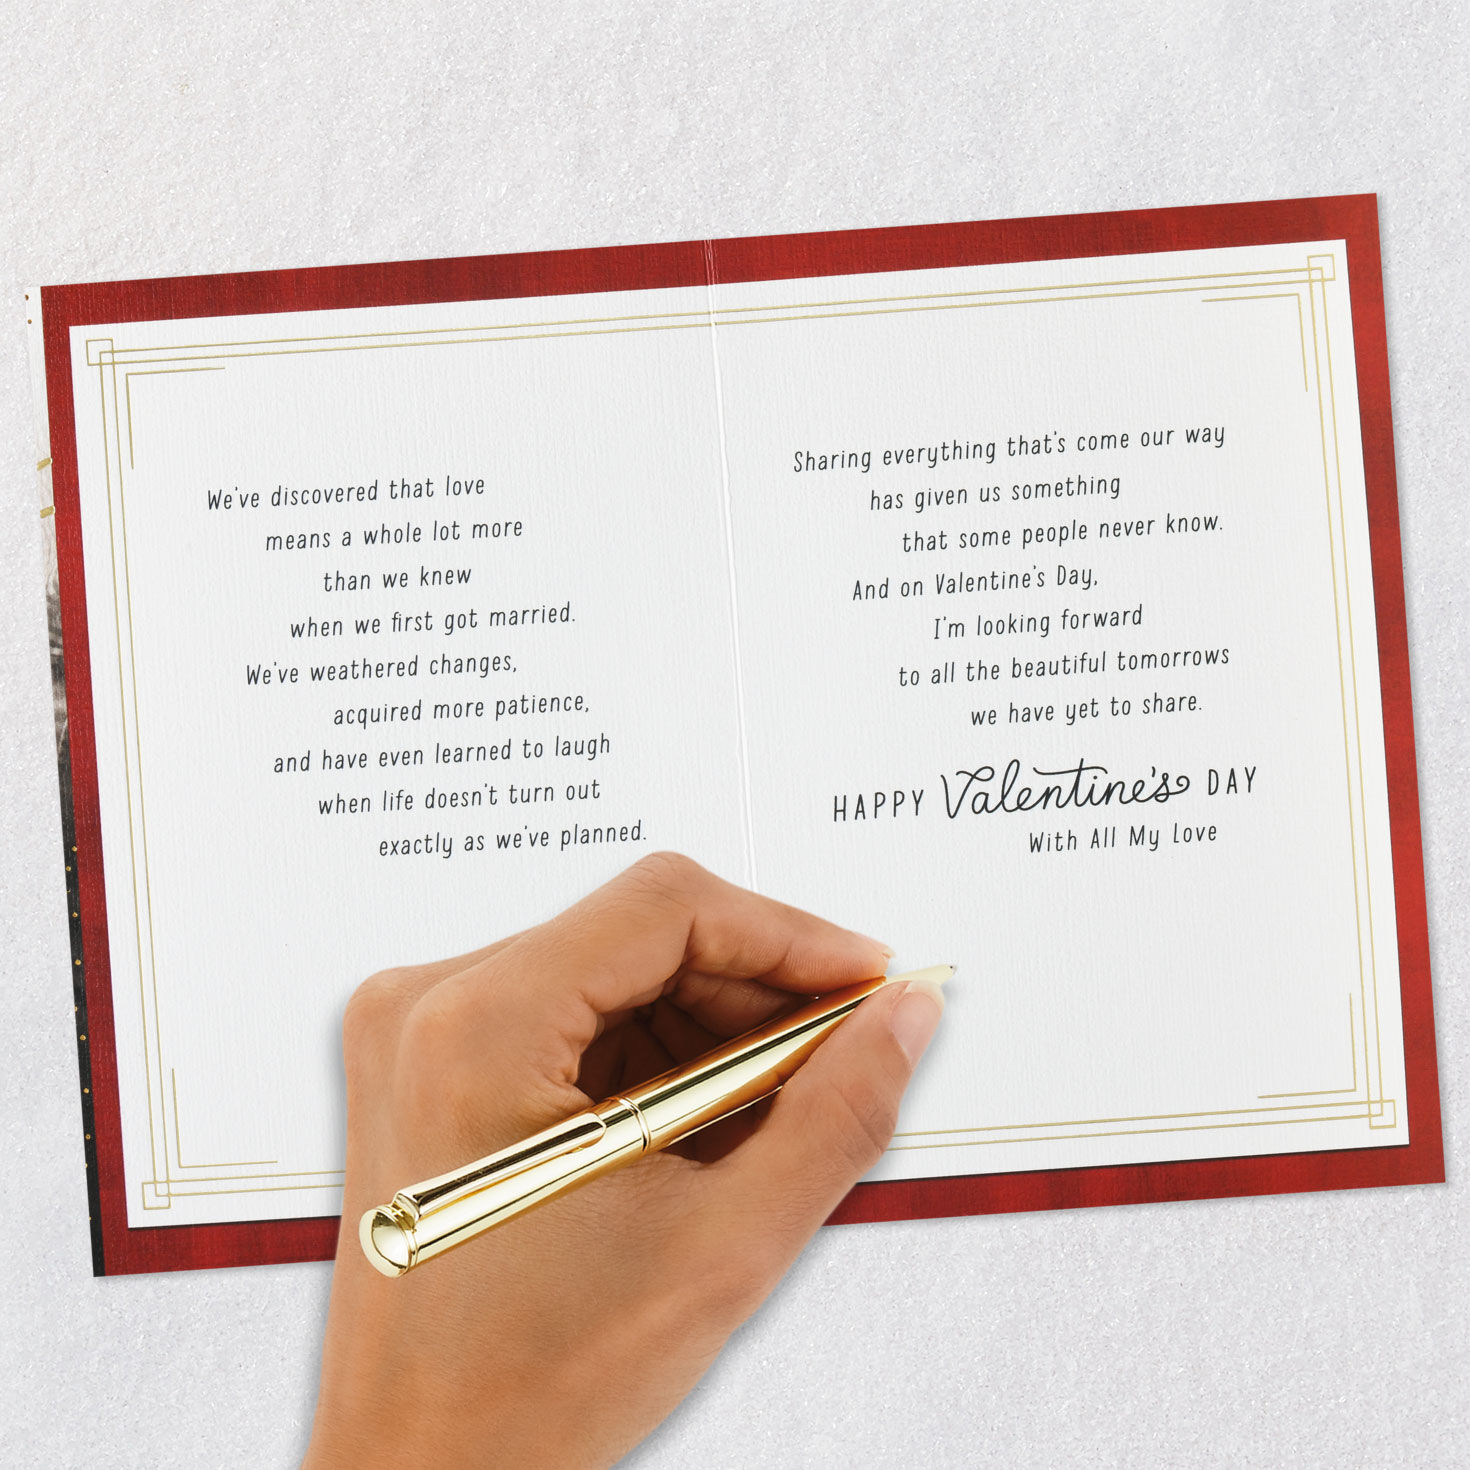 We've discovered that love
means a whole lot more
than we knew
when we first got married.
We've weathered changes,
acquired more patience,
and have even learned to laugh
when life doesn't turn out
exactly as we've planned.
Sharing everything that's come our way
has given us something
that some people never know.
And on Valentine's Day,
I'm looking forward
to all the beautiful tomorrows
we have yet to share.
HAPPY Valentine's DAY
With All My Love